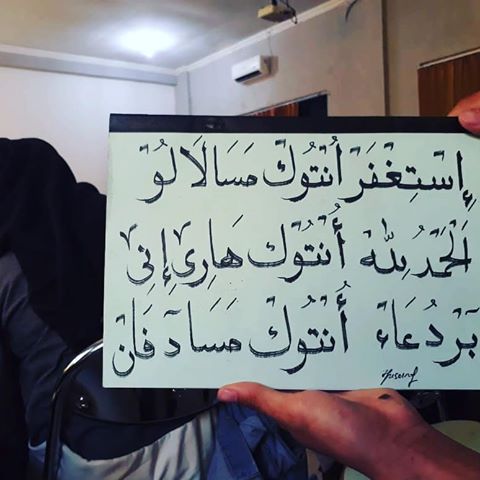 إِسْتِغْفَرْ أُنْتُوْكْ مَسَالَالُوْ
اَلْحَمْدُ لِلّٰهْ أُنْتُوْكْ هَارِيْ إِنِيْ
بَرْدُعَاءْ أُنْتُوْكْ مَسَادَفَانْ